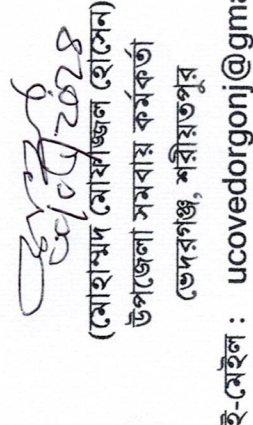 (মোহাম্মদ মোফাজ্জল হোসেন)
উপজেলা সমবায় কর্মকর্তা
ভেদরগঞ্জ, শরীয়তপুর
ই-মেইল : ucovedorgonj@gma